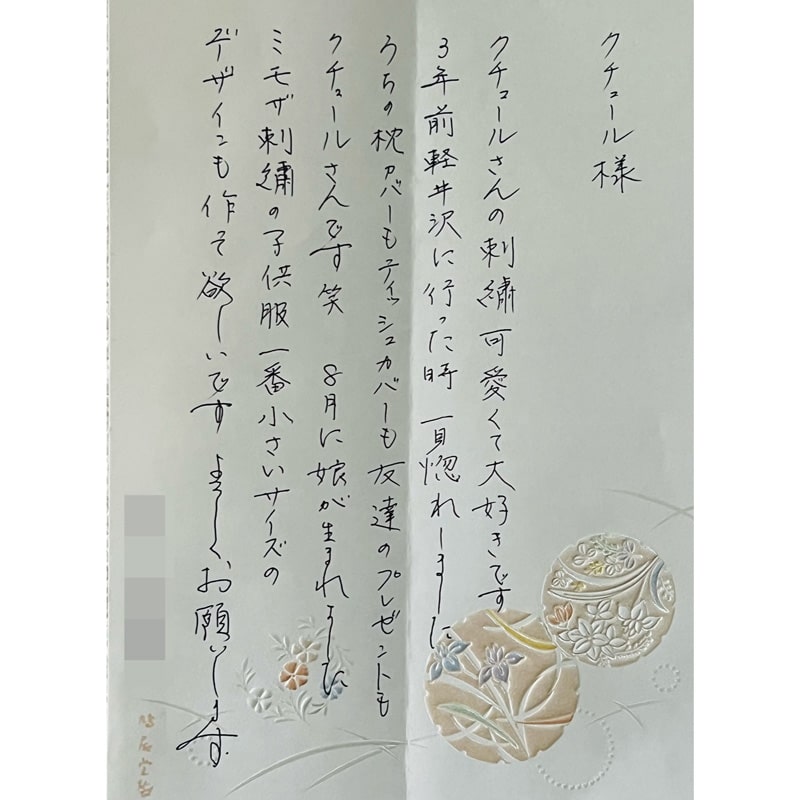 クチュール様
クチュールさんの刺繍可愛くて大好きです
3年前軽井沢に行った時一目惚れしました
うちの枕カバーもティッシュカバーも友達のプレゼントも
クチュールさんです笑 8月に娘が生まれました
ミモザ刺繍の子供服一番小さいサイズの
デザインも作って欲しいです よろしくお願いします
鳩居堂製